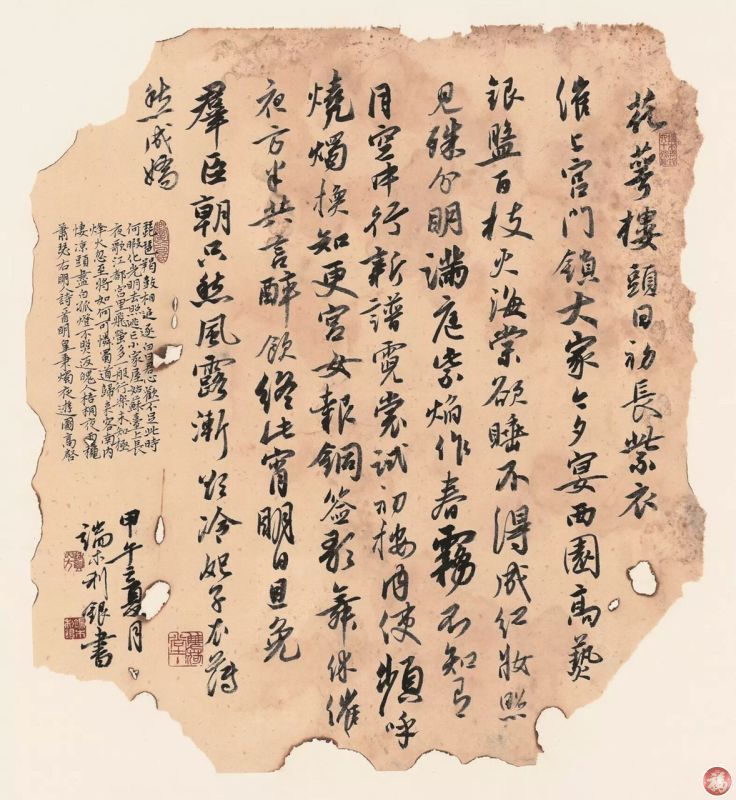 花萼樓頭日初長紫衣
催上宮門鎖大家今夕宴西園高爇
銀盤百枝火海棠欲睡不得成紅妝照
見殊分明滿庭紫焰作春霧不知有
月空中行新譜霓裳試初樓內使頻呼
燒燭換知更宮女報銅簽歌舞休催
夜方半共言醉飲終此宵明日且免
羣臣朝只愁風露漸欲冷妃子衣薄
愁成嬌
琵琶羯鼓相追逐白日君心歡不足此時
何暇化光明去照逃亡小家屋姑蘇臺上長
夜歌江都宮里飛螢多一般行樂未知極
烽火忽至將如何可憐蜀道歸來客南內
悽凉頭盡白孤燈不照返魂人梧桐夜雨穐
蕭瑟右明人詩首明皇秉燭夜遊圖高啓
甲午立夏月
端木利銀書
福